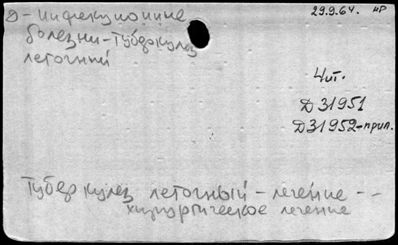 29.9.64. нр
Д - инфекционные
болезни - туберкулез
легочный
4 ит.
Д31951
Д31952-прил.
Туберкулез легочный - лечение --
хирургическое лечение